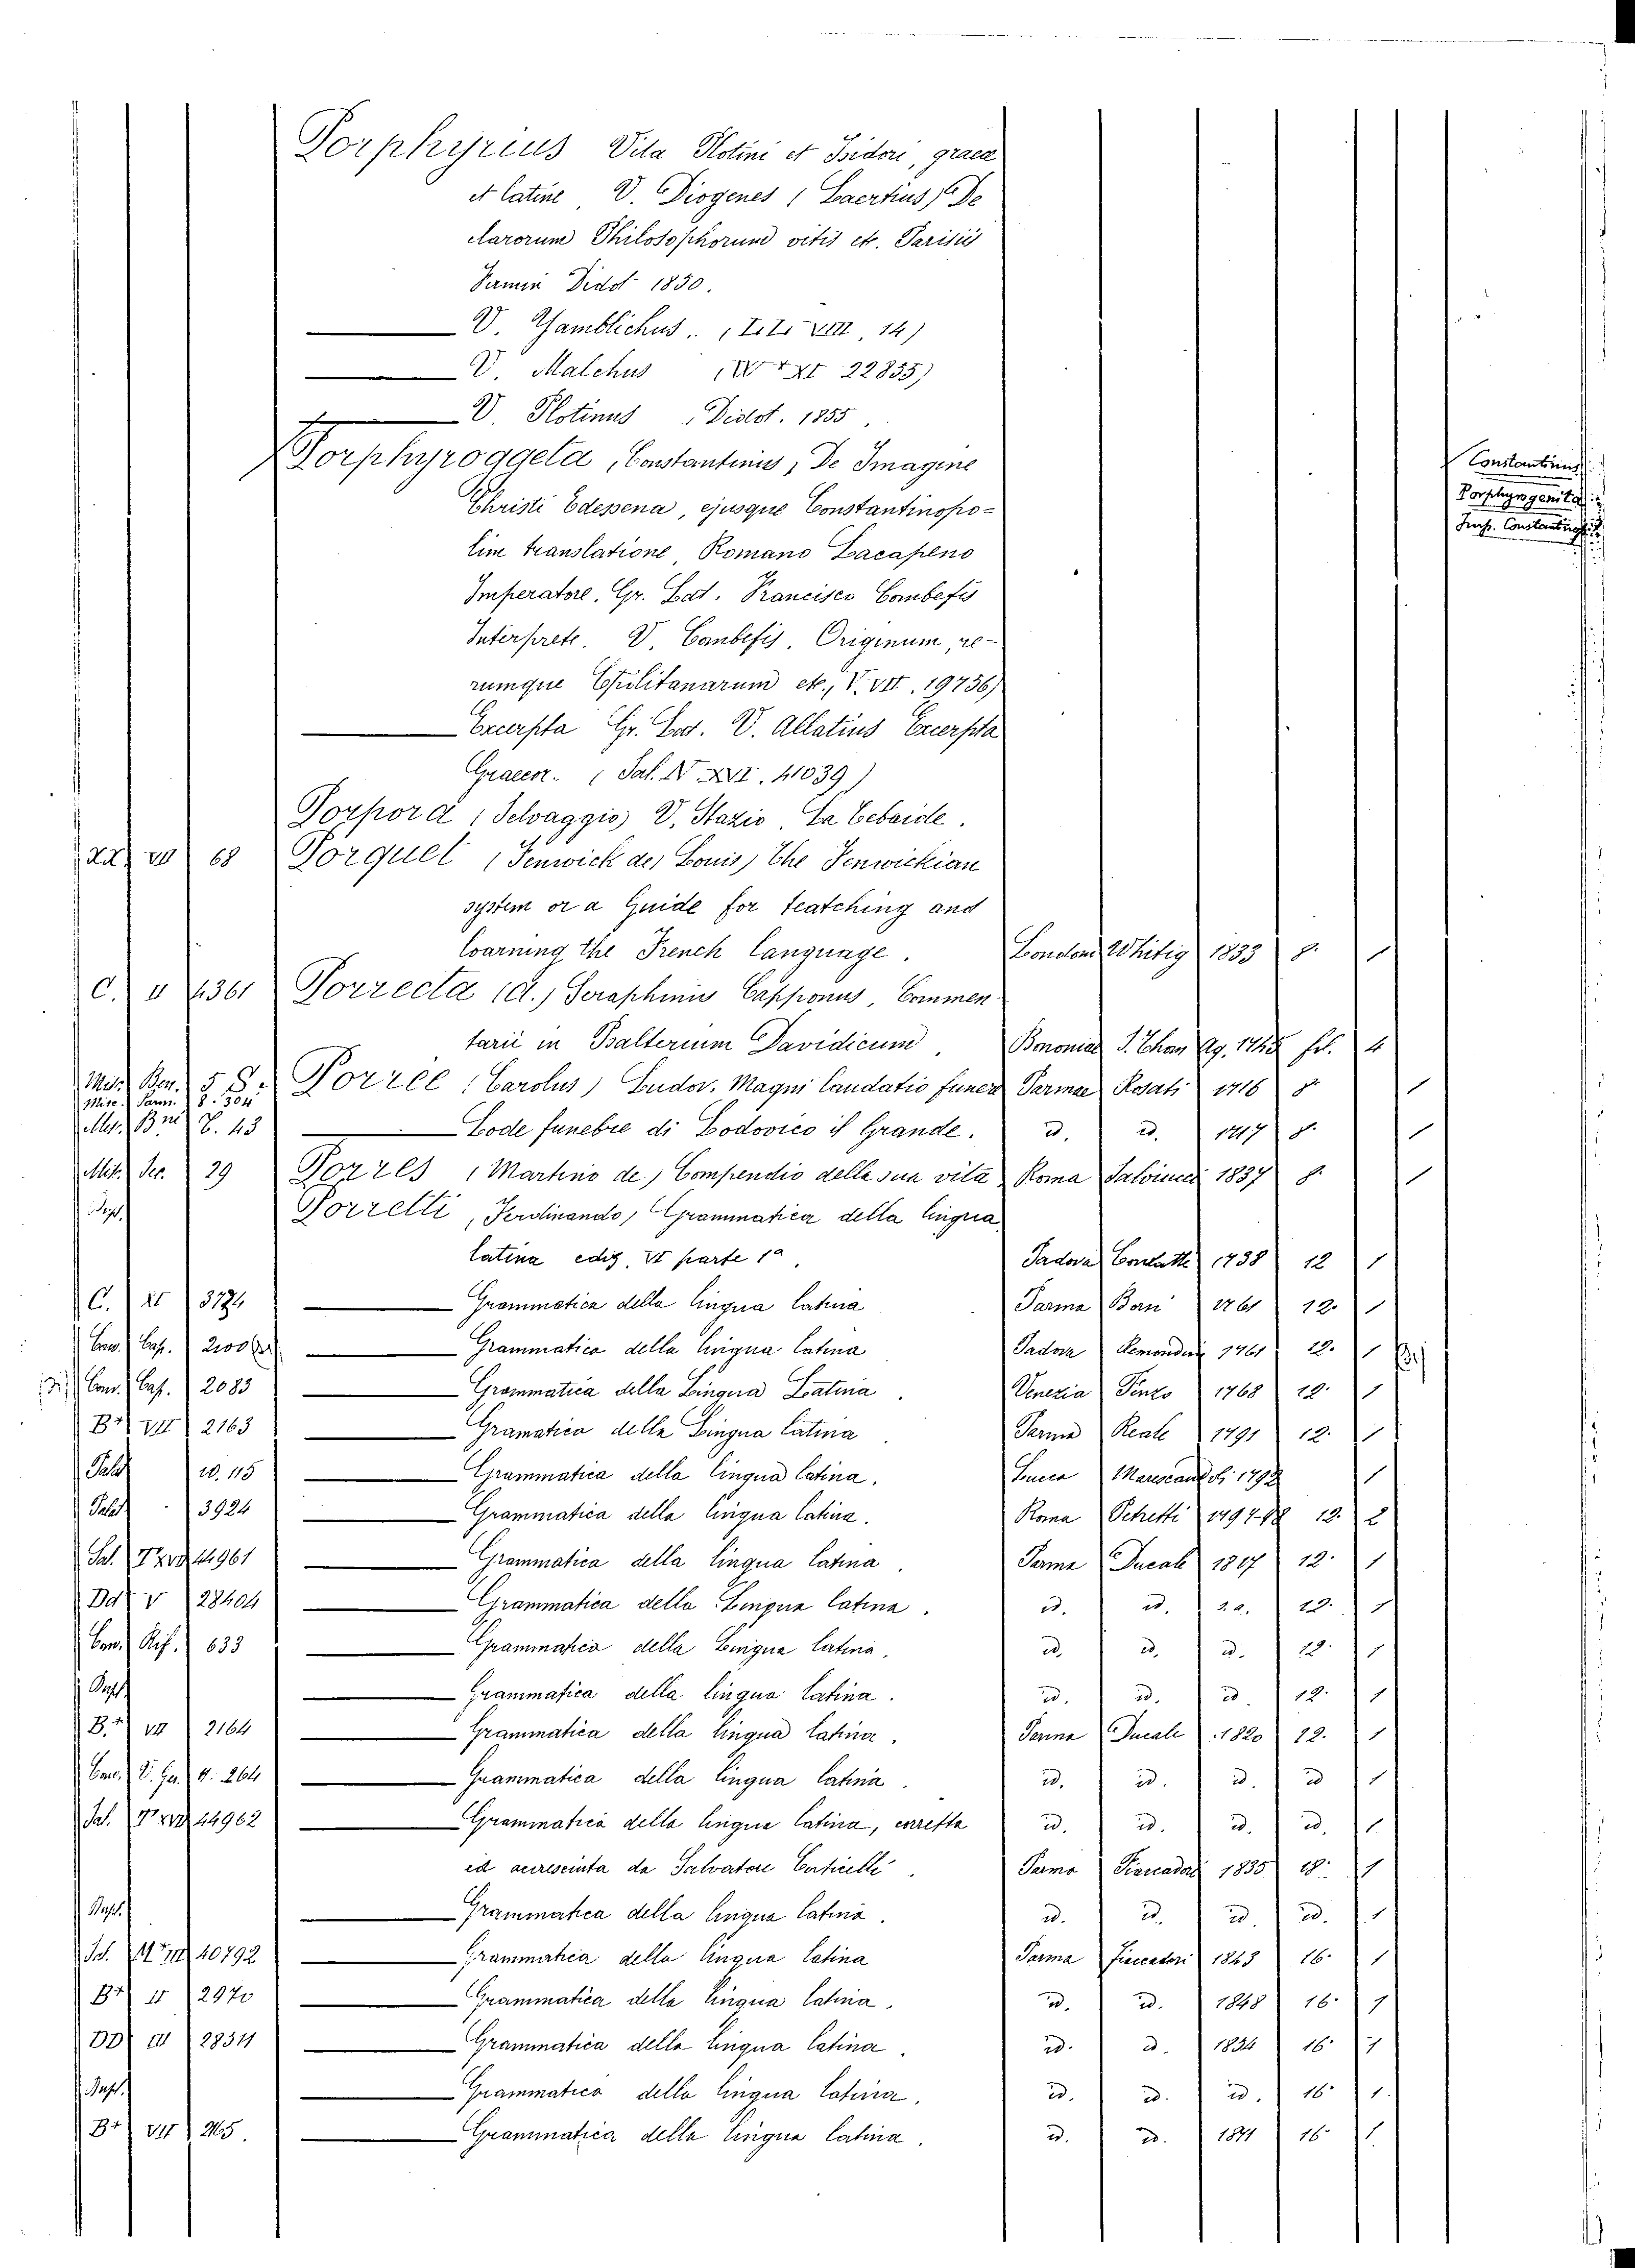 Porphyrius Vita Plotini et Isidori, graece
et latine, V. Diogenes (Laertius) De
clarorum Philosophorum vitis etc. Parisiis
Didot 1850.
V. Jamblichus. 14)
V. Malchus 22835)
V. Plotinus Didot. 1855.
Porphyroggeta, Constantinus, De Imagine
Christi Edessena, ejusque Constantinopo-
lim translatione, Romano Lacapeno
Imperatore. Gr. Lat. Francisco Combefis
Interprete. V. Combefis, Originum, re-
rumque Cpolitanarum etc., V. VII. 19736)
Constantinus
Porphyrogenita
Imp. Constantinopoli
Excerpta Gr. Lat. V. Allatius Excerpta
Graecor. (Sal. 41039)
Porpora (Selvaggio) V. Stazio. La Tebaide.
68 Porquet (Fenwick de, Louis) The Fenwickian
system or a Guide for teatching and
learning the French language. London Whitig 1833 8. 1
C. II 4361 Porrecta (a.) Seraphinus Capponus, Commen-
tarii in Psalterium Davidicum, Bononiae fol. 4
Porrée (Carolus) Ludov. Magni laudatio funer. Parmae Rosati 1716 8 1
Lode funebre di Lodovico il Grande. id. id. 1717 8. 1
29 Porres (Martino de) Compendio della sua vita Roma Salviucci 1837 8. 1
Porretti, Ferdinando, Grammatica della lingua
latina ediz. VI parte 1ª. Padova 1738 12 1
C. XI 3774 Grammatica della lingua latina Parma 1761 12. 1
Conv. Cap. Grammatica della lingua latina Padova Remondini 1761 12. 1
Conv. Cap. 2083 Grammatica della Lingua Latina. Venezia 1768 12. 1
Br. VII 2163 Gramatica della Lingua latina Parma Reale 1791 12. 1
Palat. 115 Grammatica della lingua latina. Lucca Marescandoli 1792 1
Palat. 3924 Grammatica della lingua latina. Roma Petretti 1797-98 12. 2
Sal. 44961 Grammatica della lingua latina. Parma Ducale 1807 12. 1
28404 Grammatica della Lingua latina. id. id. s.a. 12. 1
633 Grammatica della Lingua latina. id. id. id. 12. 1
Dupl. Grammatica della lingua latina. id. id. id. 12. 1
Br. VII 2164 Grammatica della lingua latina. Parma Ducale 1820 12. 1
264 Grammatica della lingua latina. id. id. id. id 1
Sal. 44962 Grammatica della lingua latina, corretta id. id. id. id. 1
ed accresciuta da Salvatore Corticelli. Parma Fiaccadori 1835 18. 1
Dupl. Grammatica della lingua latina. id. id. id. id. 1
40792 Grammatica della lingua latina Parma Fiaccadori 1843 16. 1
Br. II 2970 Grammatica della lingua latina. id. id. 1848 16. 1
28311 Grammatica della lingua latina. id. id. 1854 16. 1
Dupl. Grammatica della lingua latina. id. id. id. 16. 1.
Br. VII Grammatica della lingua latina. id. id. 1871 16. 1.